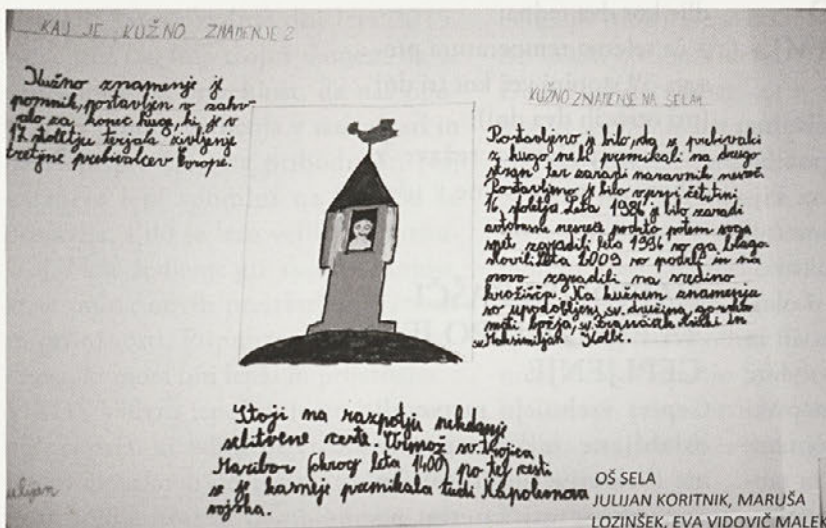 KAJ JE KUŽNO ZNAMENJE?
Kužno znamenje je
pomnik, postavljen v zahv-
alo za konec kuge, ki je v
17. stoletju terjala življenje
tretjine prebivalcev Evrope.
KUŽNO ZNAMENJE NA SELAH
Postavljno je bilo, da se prebivalci
z kugo ne bi premikali na drugo
stran ter zaradi naravnih nesreč.
Postavljeno je bilo v prvi četrtini
16. stoletja. Leta 1986 je bilo zaradi
avtomobi nesreče podrto potem so ga
spet zgradili leta 1996 so ga blago
slovili. Leta 2009 so podrli in na
novo zgradili na sredino
krožišča. Na kužnem znamenju
so upodobljeni sv. družina, gorska
mati božja, sv. Frančišek Asiški in
sv. Maksimiljan Kolbe.
Stoji na razpotju nekdanje
selitvene ceste. Ormož sv. Trojica
Maribor (okrog leta 1400) po tej cesti
se je kasneje premikala tudi Napoleonova
vojska.
ulijan
OŠ SELA
JULIJAN KORITNIK, MARUŠA
LOZINŠEK, EVA VIDOVIČ MALEK